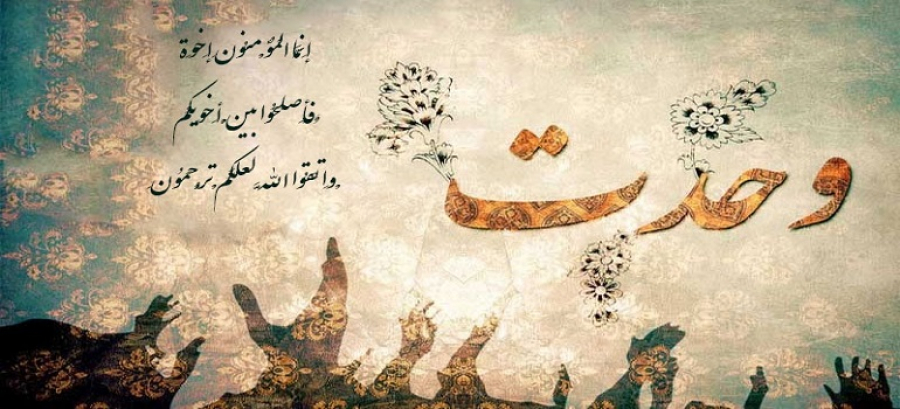 إنما المؤمنون إخوة
فأصلحوا بين أخويكم
واتقوا الله لعلكم ترحمون
وحدت